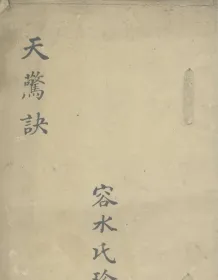 天驚訣
容水氏珍